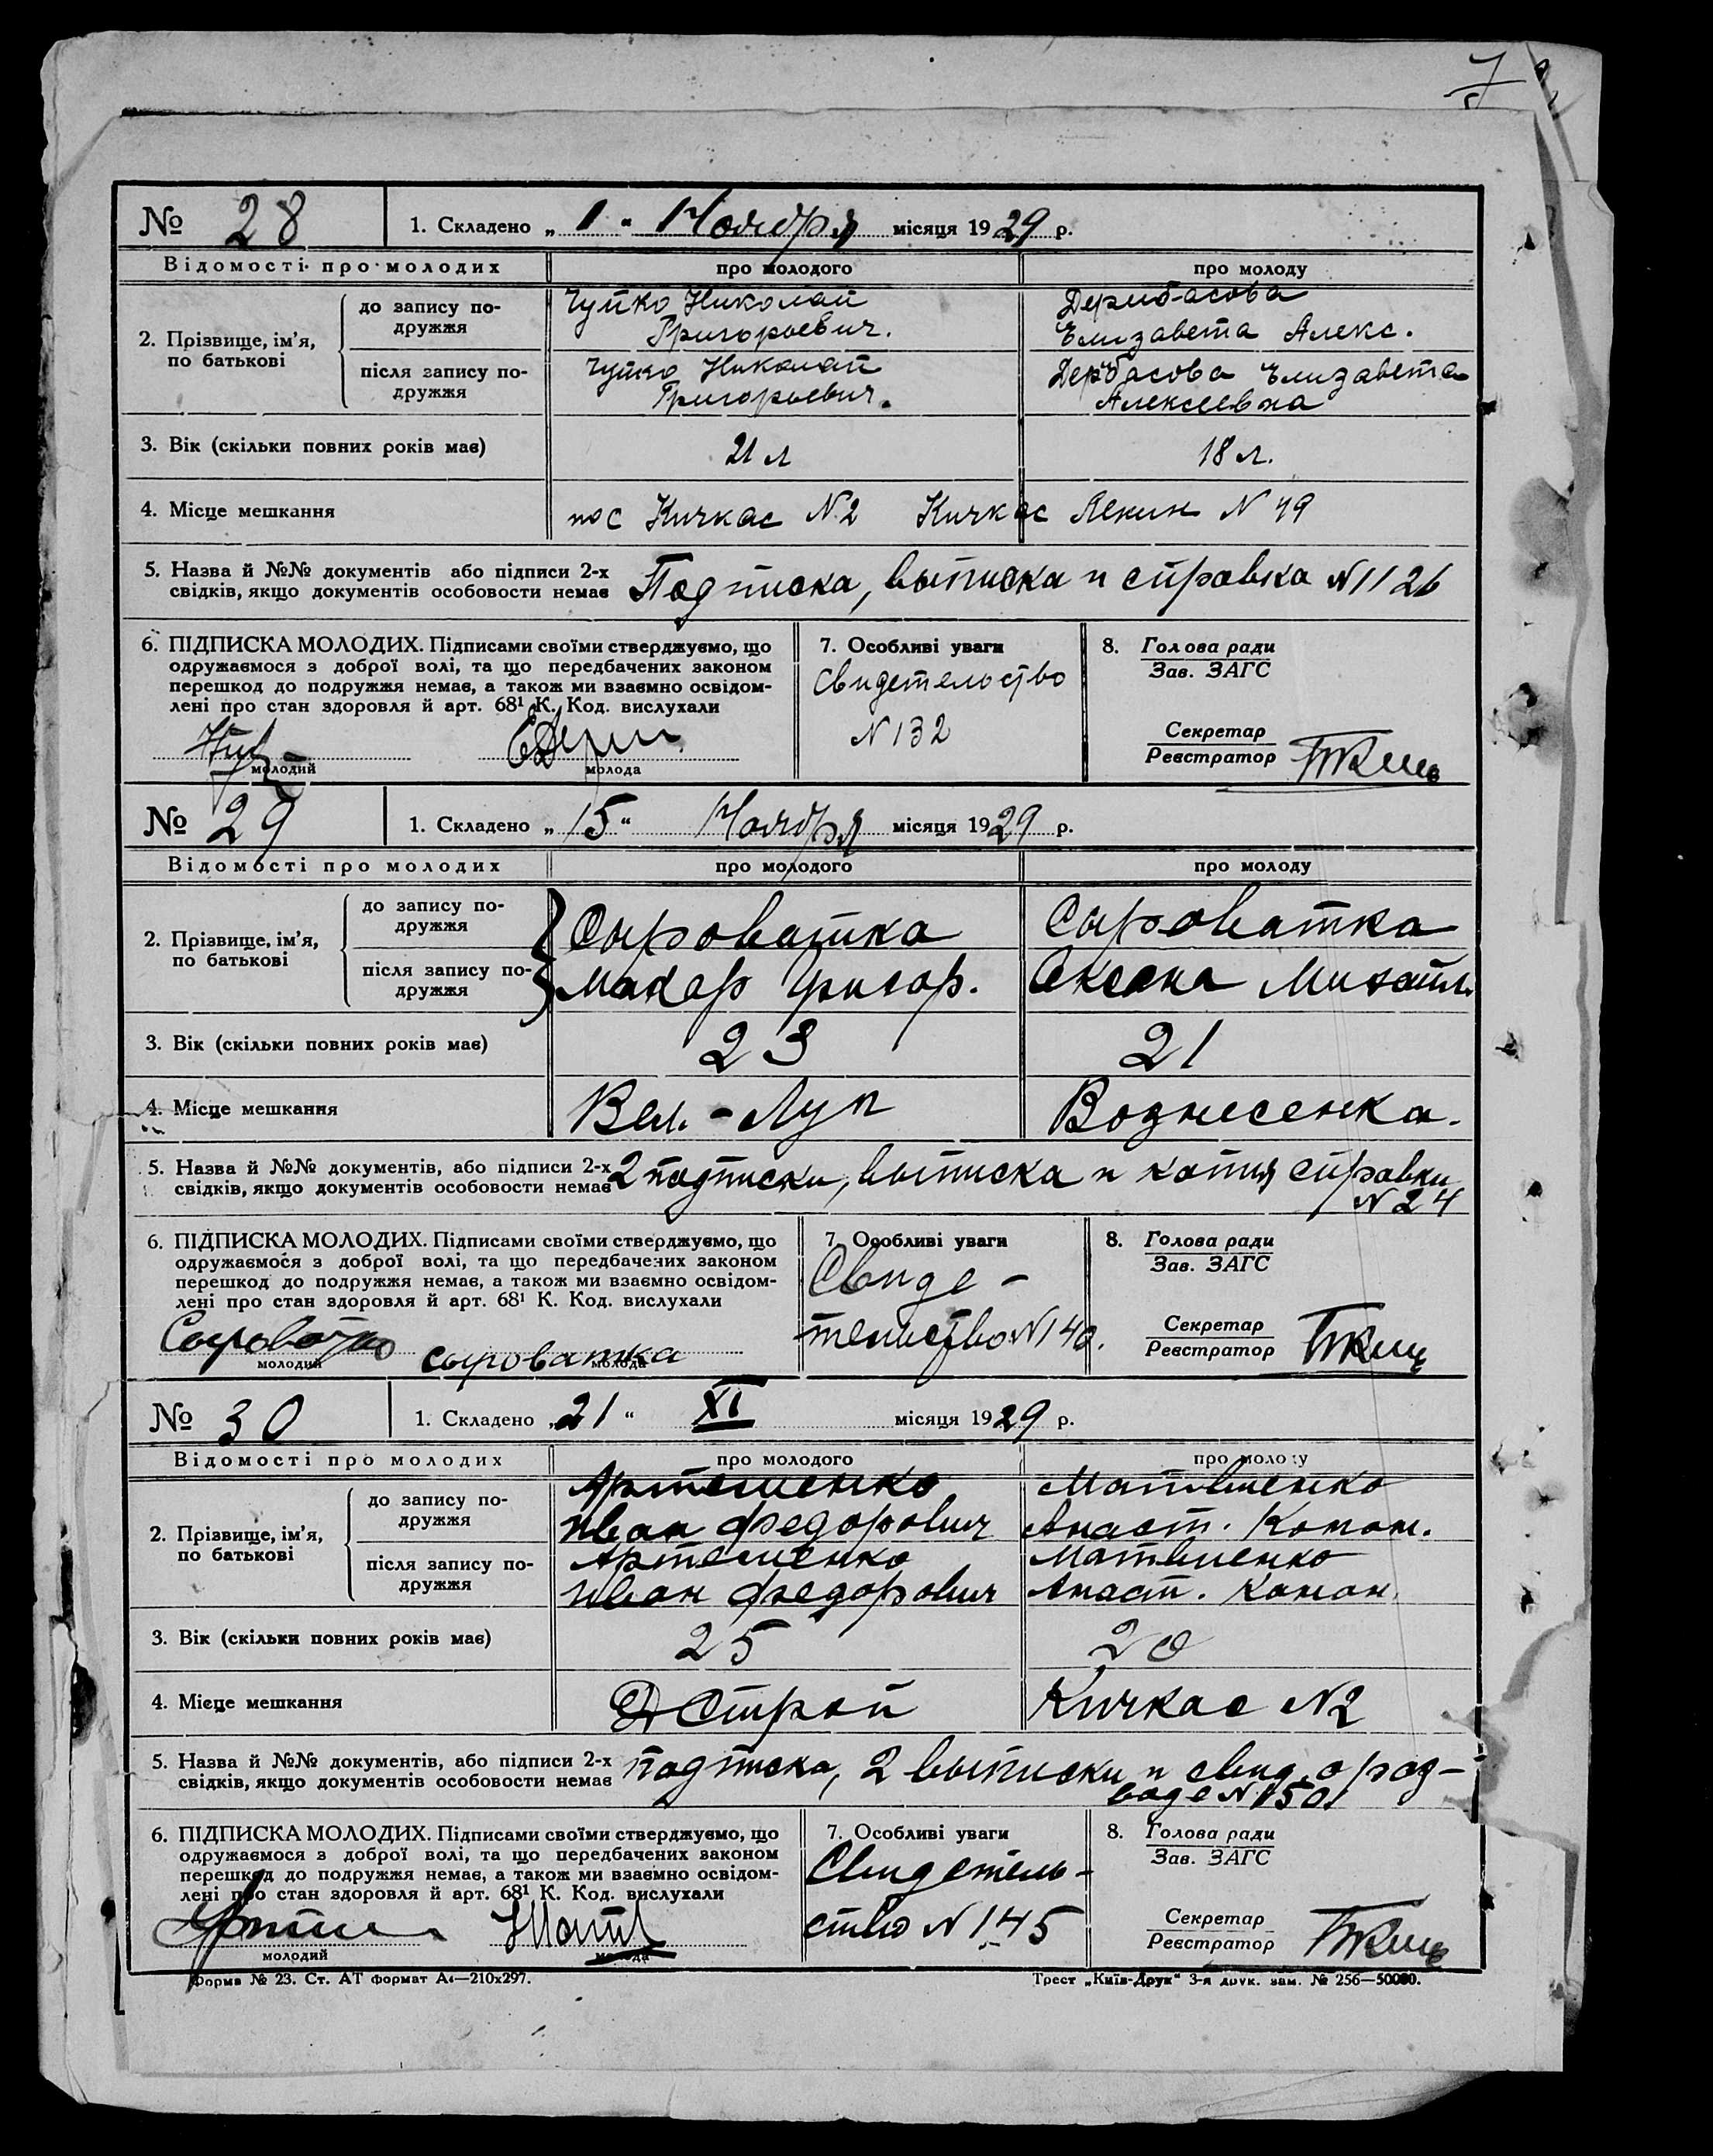 № 28
1. Складено „ 1 “ Ноября місяця 1929 р.
Відомості про молодих про молодого про молоду
2. Прізвище, ім’я, по батькові
до запису подружжя
Чуйко Николай Дерибасова
Григорьевич. Елизавета Алекс.
після запису подружжя
Чуйко Николай Дербасова Елизавета
Григорьевич. Алексеевна
3. Вік (скільки повних років має) 21 л 18 л.
4. Місце мешкання пос Кичкас N2 Кичкас Ленин N 49
5. Назва й №№ документів або підписи 2-х
свідків, якщо документів особовости немає Подписка, выписка и справка N 1126
6. ПІДПИСКА МОЛОДИХ. Підписами своїми стверджуємо, що
одружаємося з доброї волі, та що передбачених законом
перешкод до подружжя немає, а також ми взаємно освідом-
лені про стан здоровля й арт. 68¹ К. Код. вислухали
молодий молода
7. Особливі уваги
Свидетельство
N 132
8. Голова ради
Зав. ЗАГС
Секретар
Реєстратор
№ 29
1. Складено „ 15 “ Ноября місяця 1929 р.
Відомості про молодих про молодого про молоду
2. Прізвище, ім’я, по батькові
до запису подружжя
Сыроватка Сыроватка
після запису подружжя
Макар Григор. Оксана Михайл.
3. Вік (скільки повних років має) 23 21
4. Місце мешкання Вел.-Луг Вознесенка.
5. Назва й №№ документів, або підписи 2-х
свідків, якщо документів особовости немає 2 подписки, выписка и копия справки
N 24
6. ПІДПИСКА МОЛОДИХ. Підписами своїми стверджуємо, що
одружаємося з доброї волі, та що передбачених законом
перешкод до подружжя немає, а також ми взаємно освідом-
лені про стан здоровля й арт. 68¹ К. Код. вислухали
Сыроватко сыроватка
молодий молода
7. Особливі уваги
Свиде-
тельство N 140.
8. Голова ради
Зав. ЗАГС
Секретар
Реєстратор
№ 30
1. Складено „ 21 “ XI місяця 1929 р.
Відомості про молодих про молодого про молоду
2. Прізвище, ім’я, по батькові
до запису подружжя
Артеменко Матвиенко
Иван Федорович Анаст. Конон.
після запису подружжя
Артеменко Матвиенко
Иван Федорович Анаст. Конон.
3. Вік (скільки повних років має) 25 20
4. Місце мешкання Д Строй Кичкас N2
5. Назва й №№ документів, або підписи 2-х
свідків, якщо документів особовости немає подписка, 2 выписки и свид. о раз-
воде N 150.
6. ПІДПИСКА МОЛОДИХ. Підписами своїми стверджуємо, що
одружаємося з доброї волі, та що передбачених законом
перешкод до подружжя немає, а також ми взаємно освідом-
лені про стан здоровля й арт. 68¹ К. Код. вислухали
молодий молода
7. Особливі уваги
Свидетель-
ство N 145
8. Голова ради
Зав. ЗАГС
Секретар
Реєстратор
Форма № 23. Ст. АТ формат А4—210х297. Трест „Київ-Друк“ 3-я друк. зам. № 256—50000.